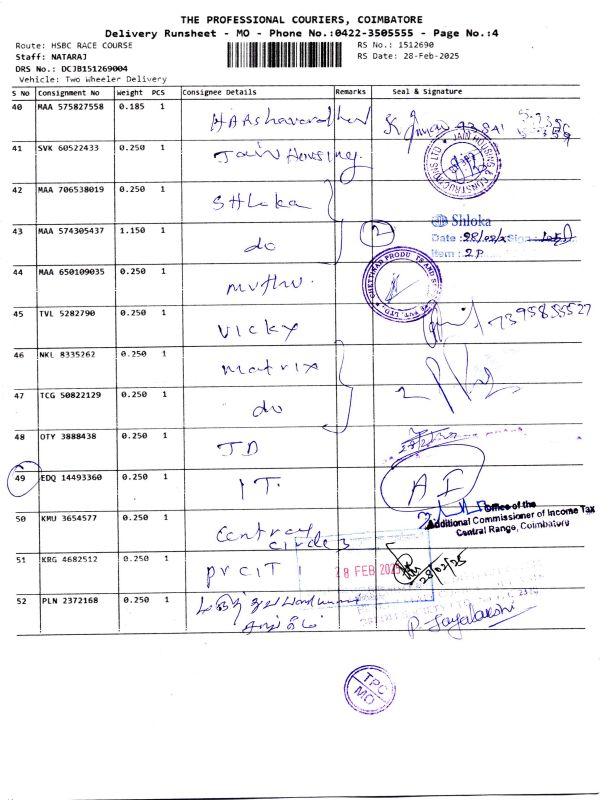 THE PROFESSIONAL COURIERS, COIMBATORE
Delivery Runsheet - MO - Phone No.:0422-3505555 - Page No.:4
Route: HSBC RACE COURSE
RS No.: 1512690
Staff: NATARAJ
RS Date: 28-Feb-2025
DRS No.: DCJB151269004
Vehicle: Two Wheeler Delivery
S No Consignment No Weight PCS Consignee Details Remarks Seal & Signature
40 MAA 575827558 0.185 1
41 SVK 60522433 0.250 1 Jain Housing.
JAIN HOUSING & CONSTRUCTIONS LTD
42 MAA 706538019 0.250 1 SHloka
Shloka
43 MAA 574305437 1.150 1 do 2
Date : 28/02/2 Sign :
Item : 2P
44 MAA 650109035 0.250 1 muthu.
45 TVL 5282790 0.250 1 Vicky
46 NKL 8335262 0.250 1 matrix
47 TCG 50822129 0.250 1 do 2
48 OTY 3888438 0.250 1 JD
49 EDQ 14493360 0.250 1 IT. A I
Office of the
Additional Commissioner of Income Tax
Central Range, Coimbatore
50 KMU 3654577 0.250 1 Central
circle 3
51 KRG 4682512 0.250 1 Pr CIT 1
28 FEB 2025
28/02/25
52 PLN 2372168 0.250 1
P. Jayalakshi
TPC
MO